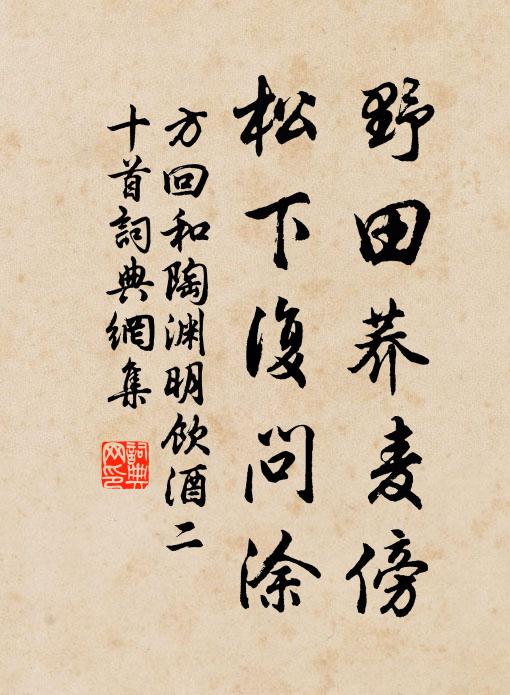 野田荞麦傍
松下復问涂
方回和陶渊明饮酒二
十首詞典網集
詞典
网印